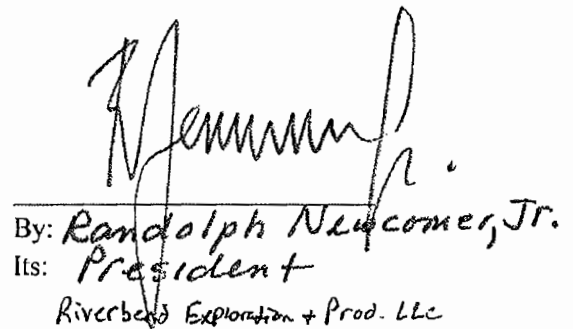 By: Randolph Newcomer, Jr.
Its: President
Riverbend Exploration + Prod. LLC